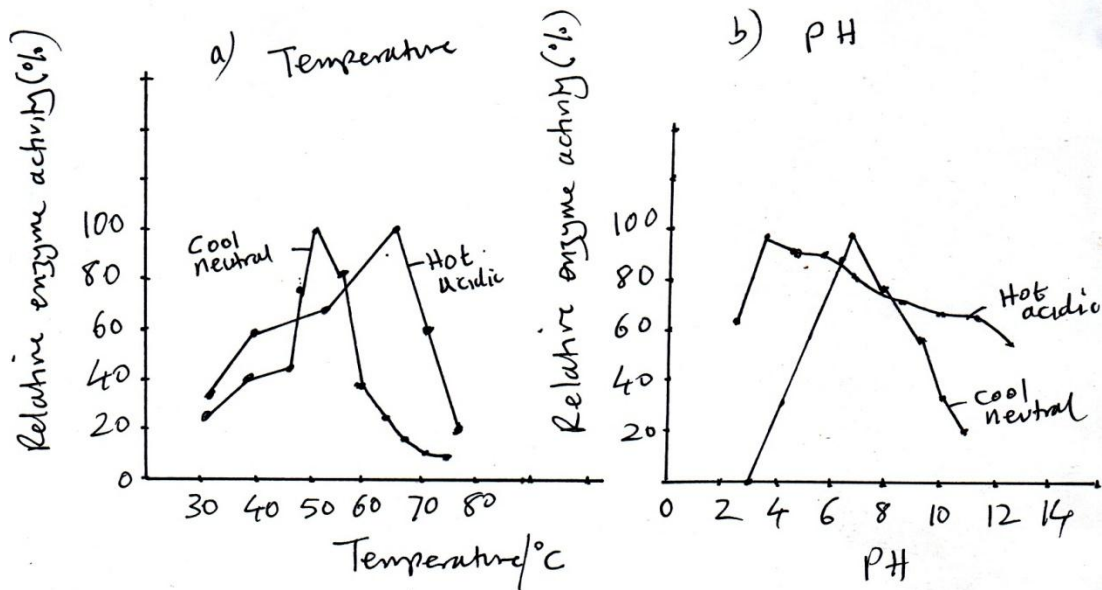 a) Temperature
Relative enzyme activity (%)
100
80
60
40
20
0
Cool
neutral
Hot
acidic
30 40 50 60 70 80
Temperature/°C
b) PH
Relative enzyme activity (%)
100
80
60
40
20
Hot
acidic
Cool
neutral
0 2 4 6 8 10 12 14
PH